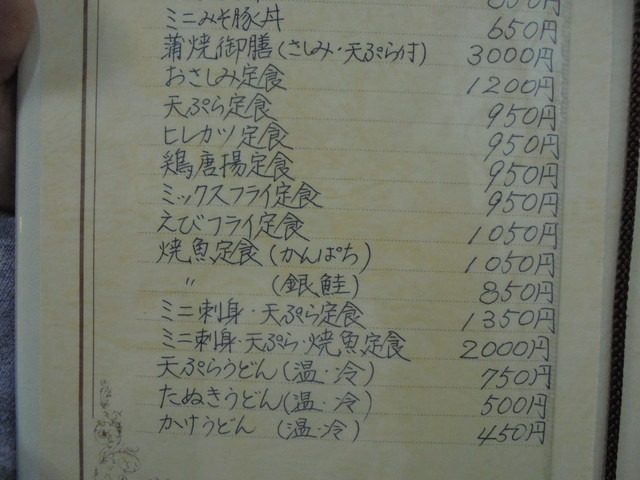 ミニみそ豚丼 650円
蒲焼御膳(さしみ・天ぷら付) 3000円
おさしみ定食 1200円
天ぷら定食 950円
ヒレカツ定食 950円
鶏唐揚定食 950円
ミックスフライ定食 950円
えびフライ定食 1050円
焼魚定食(かんぱち) 1050円
〃 (銀鮭) 850円
ミニ刺身・天ぷら定食 1350円
ミニ刺身・天ぷら・焼魚定食 2000円
天ぷらうどん(温・冷) 750円
たぬきうどん(温・冷) 500円
かけうどん (温・冷) 450円